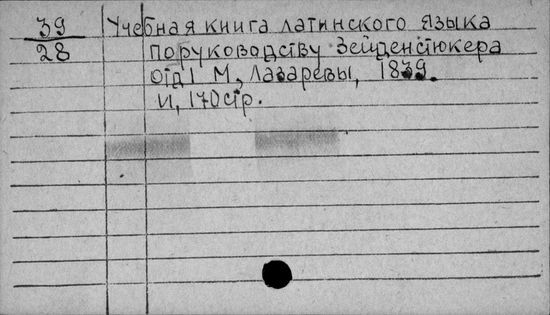 39 Учебная книга латинского языка
28 по руководству Зейденстюкера
отд I М, Лазаревы, 1839.
II, 170 стр.